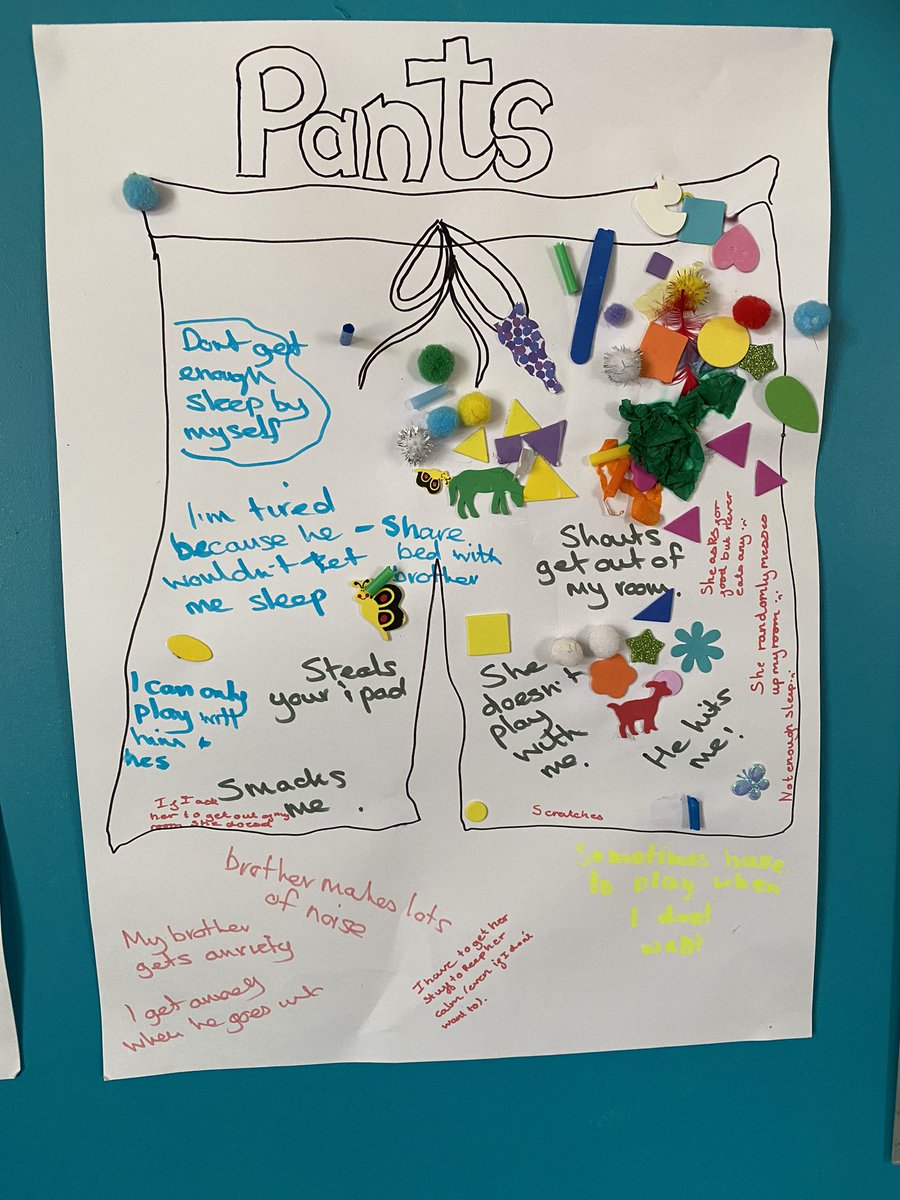 Pants
Dont get
enough
sleep by
myself
I'm tired
because he
wouldn't let
me sleep
- Share
bed with
brother
Shouts
get out of
my room.
She asks for
food but never
eats any :-
She randomly messes
up my room :-
Not enough sleep :-
Steals
your ipad
I can only
play with
him +
hes
She
doesn't
play
with
me.
He hits
me!
Smacks
me.
If I ask
her to get out of my
room she
Scratches
brother makes lots
of noise
My brother
gets anxiety
I get
when he goes
I have to get her
stuff to keep her
calm (even if I don't
want to).
Sometimes have
to play when
I dont
want